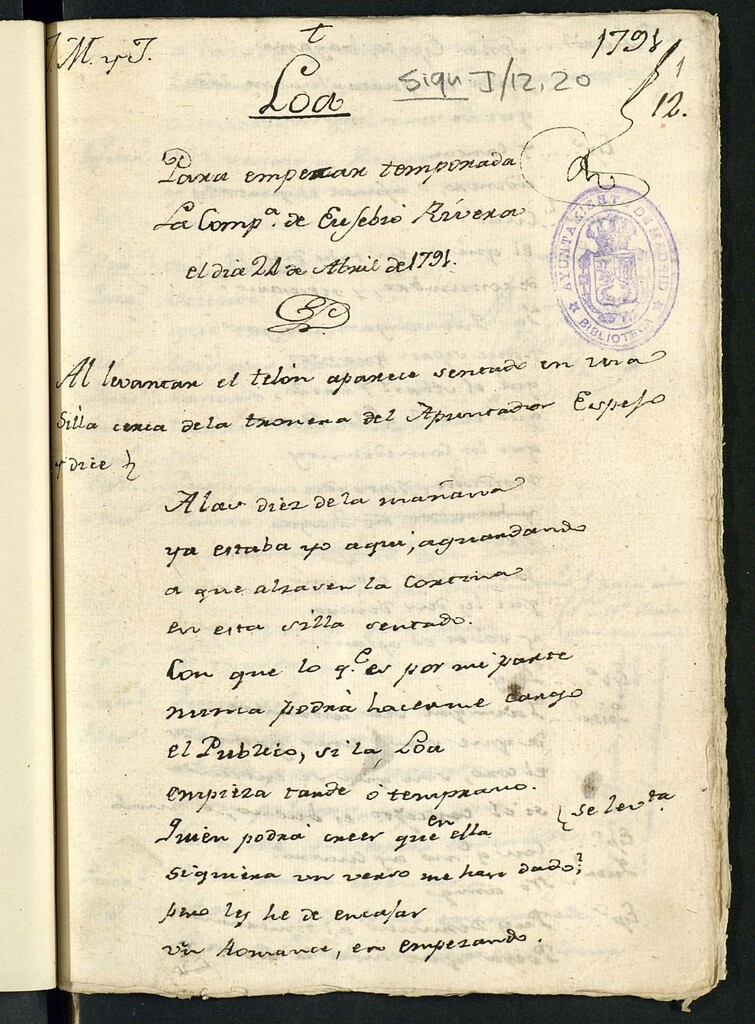 J. M. y J.
1791
1
12.
Loa
Sign I/12,20
Para empezar temporada
La Comp.a de Eusebio Rivera
el dia 24 de Abril de 1791.
AYUNTAMIENTO DE MADRID
BIBLIOTECA
Al levantar el telón aparece sentado en una
Silla cerca de la tronera del Apuntador Espejo
y dice
A las diez de la mañana
ya estaba yo aqui, aguardando
a que alzasen la Cortina
en esta silla sentado.
Con que lo q.e es por mi parte
nunca podrá hacerme cargo
el Publico, si la Loa
empieza tarde ó temprano.
Quien podrá creer que en ella
se lev.ta
siquiera un verso me han dado?
pero les he de encajar
un Romance, en empezando.